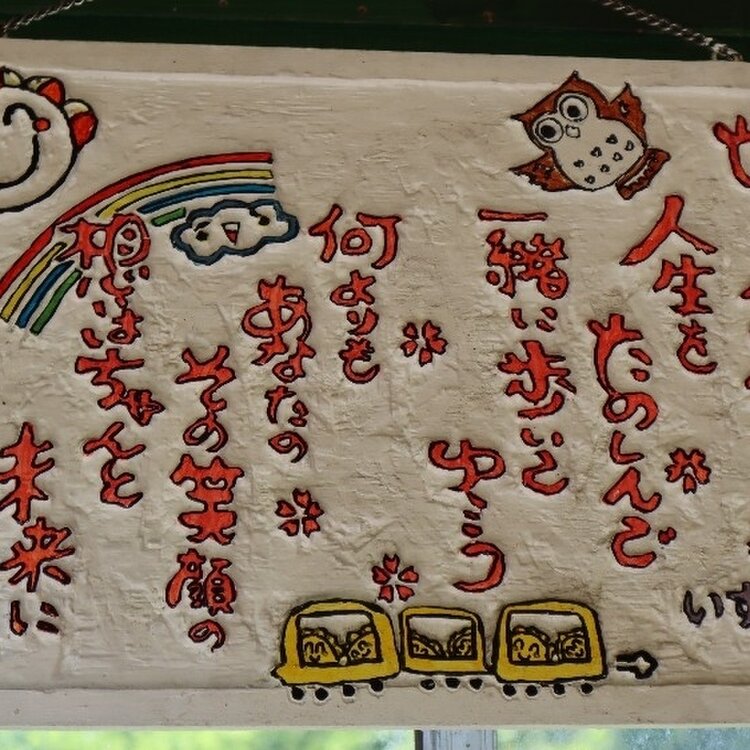 人生を
たのしんで
一緒に歩いて
ゆこう
何よりも
あなたの
その笑顔の
想いはちゃんと
未来に
いす